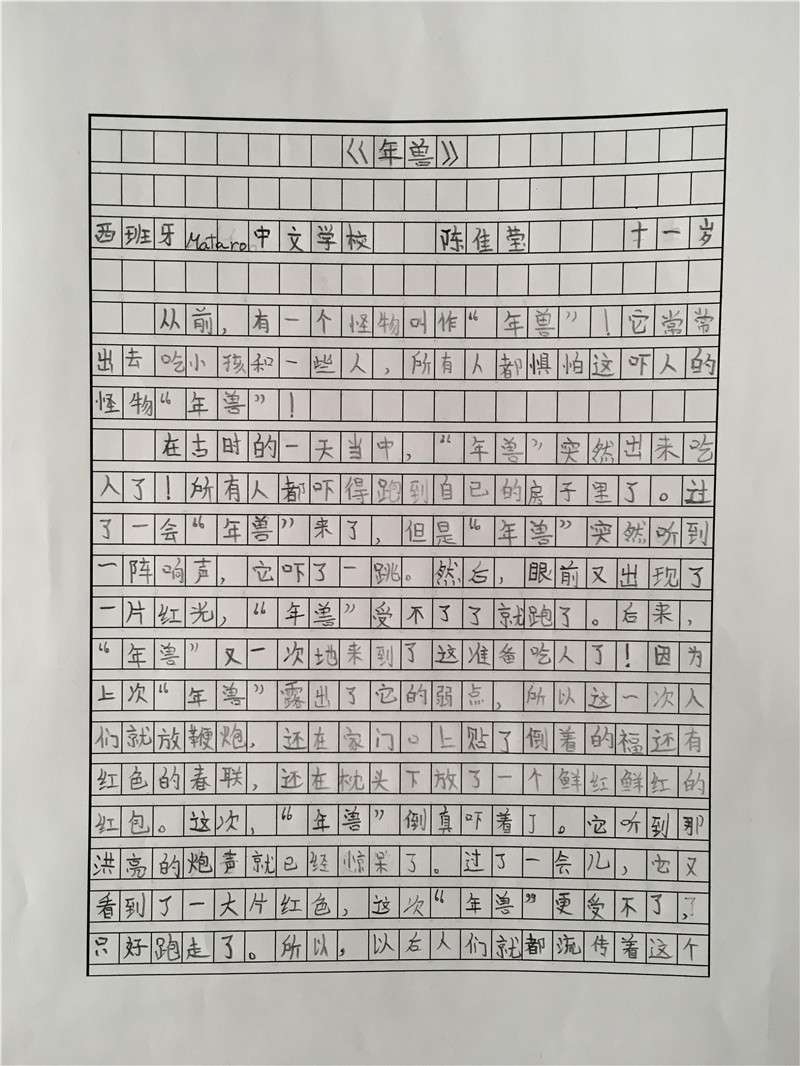 《年兽》
西班牙Mataro中文学校 陈佳莹 十一岁
从前，有一个怪物叫作“年兽”！它常常
出去吃小孩和一些人，所有人都惧怕这吓人的
怪物“年兽”！
在古时的一天当中，“年兽”突然出来吃
人了！所有人都吓得跑到自己的房子里了。过
了一会“年兽”来了，但是“年兽”突然听到
一阵响声，它吓了一跳。然后，眼前又出现了
一片红光，“年兽”受不了了就跑了。后来，
“年兽”又一次地来到了这准备吃人了！因为
上次“年兽”露出了它的弱点，所以这一次人
们就放鞭炮，还在家门口上贴了倒着的福还有
红色的春联，还在枕头下放了一个鲜红鲜红的
红包。这次，“年兽”倒真吓着了。它听到那
洪亮的炮声就已经惊呆了。过了一会儿，它又
看到了一大片红色，这次“年兽”更受不了，
只好跑走了。所以，以后人们就都流传着这个